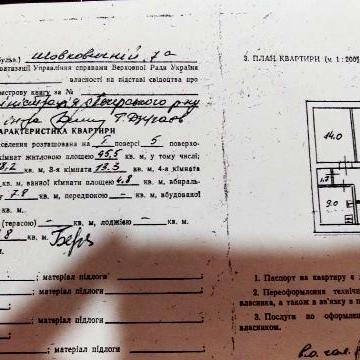 Шовковичній, 7а
ватизації Управління справами Верховної Ради України
власності на підставі свідоцтва про
естрову книгу за №
АРАКТЕРИСТИКА КВАРТИРИ
розташована на 1 поверсі 5 поверхо-
кімнат житловою площею 45,5 кв. м, у тому числі:
18,2 кв. м, 3-я кімната 13.3 кв. м, 4-а кімната
кв. м, ванної кімнати площею 4.8 кв. м, вбираль-
7.8 кв. м, передпокою — кв. м, вбудованої
кв. м.
(терасою) — кв. м, лоджією — кв. м.
8 кв. м.
; матеріал підлоги
; матеріал підлоги
; матеріал підлоги
; матеріал підлоги
3. ПЛАН КВАРТИРИ (м 1 : 200)
14.0
9.0
1. Паспорт на квартиру є
2. Переоформлення техніч
власника, а також в зв'язку в п
3. Послуги по оформле
власником.